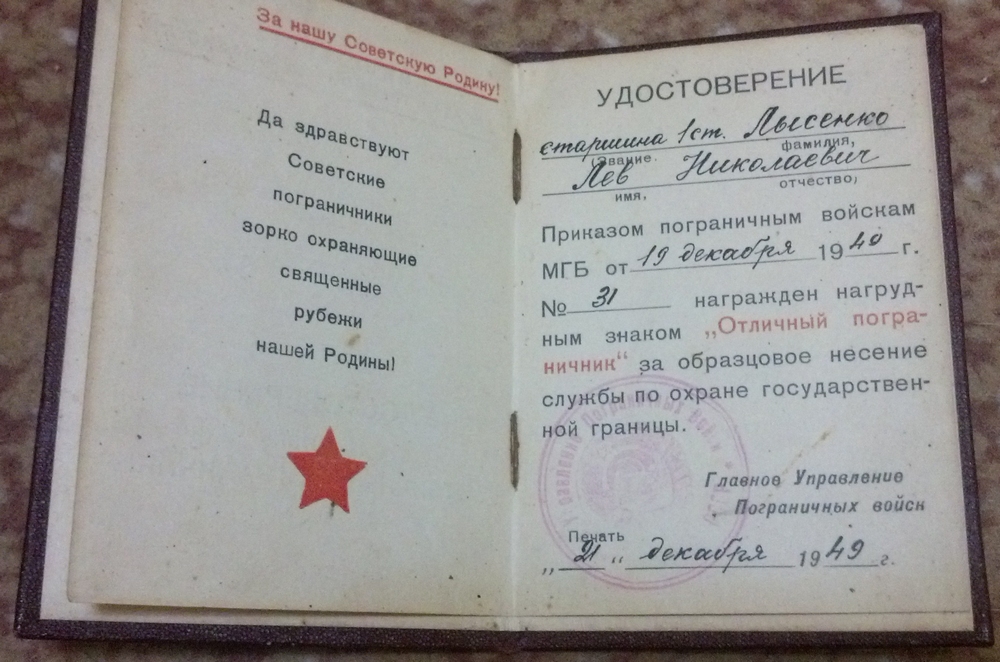 За нашу Советскую Родину!
Да здравствуют
Советские
пограничники
зорко охраняющие
священные
рубежи
нашей Родины!
УДОСТОВЕРЕНИЕ
старшина 1 ст. Лысенко
(звание. фамилия,
Лев Николаевич
имя, отчество)
Приказом пограничным войскам
МГБ от 19 декабря 1949 г.
№ 31 награжден нагруд-
ным знаком „Отличный погра-
ничник“ за образцовое несение
службы по охране государствен-
ной границы.
Главное Управление
Пограничных войск
Печать
„21“ декабря 1949 г.